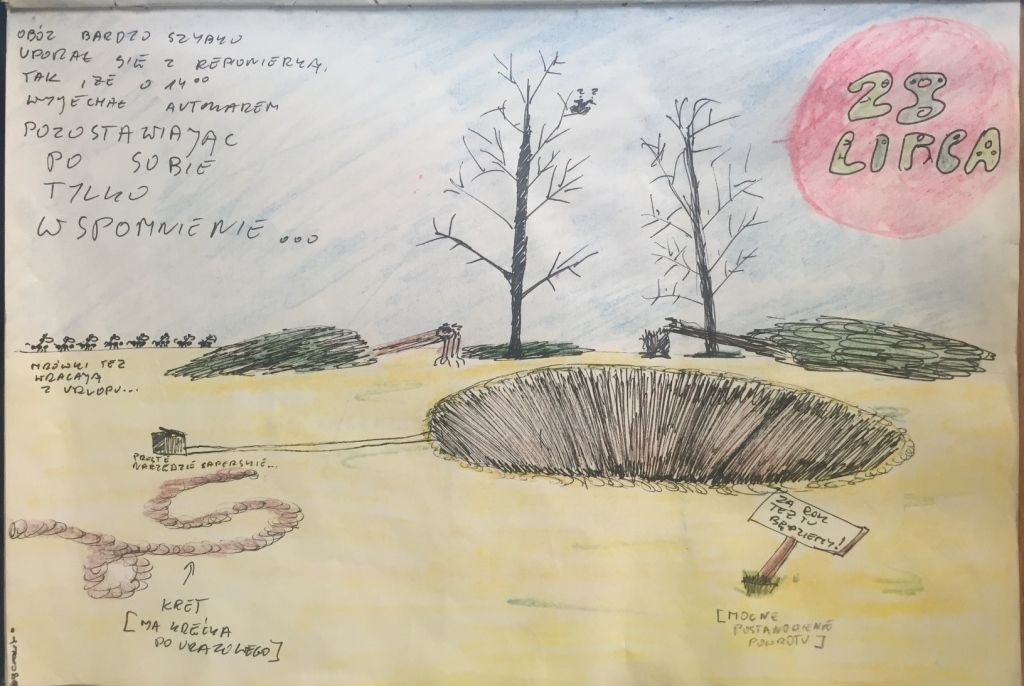 OBÓZ BARDZO SZYBKO
UPORAŁ SIĘ Z REPOWIERKĄ,
TAK, ŻE O 14⁰⁰
WYJECHAŁ AUTOKAREM
POZOSTAWIAJĄC
PO SOBIE
TYLKO
WSPOMNIENIE...
28
LIPCA
MRÓWKI TEŻ
WRACAJĄ
Z URLOPU...
PROSTE
NARZĘDZIE SAPERSKIE...
ZA ROK
TEŻ TU
BĘDZIEMY!
KRET
[MA KRĘĆKA
POURAZOWEGO]
[MOCNE
POSTANOWIENIE
POWROTU]